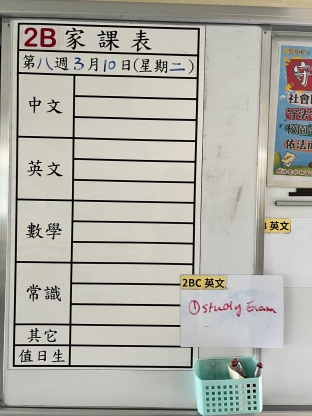 2B 家課表
第八週3月10日(星期二)
中文
英文
數學
常識
其它
值日生
2BC 英文
①study Exam
英文
守
社會